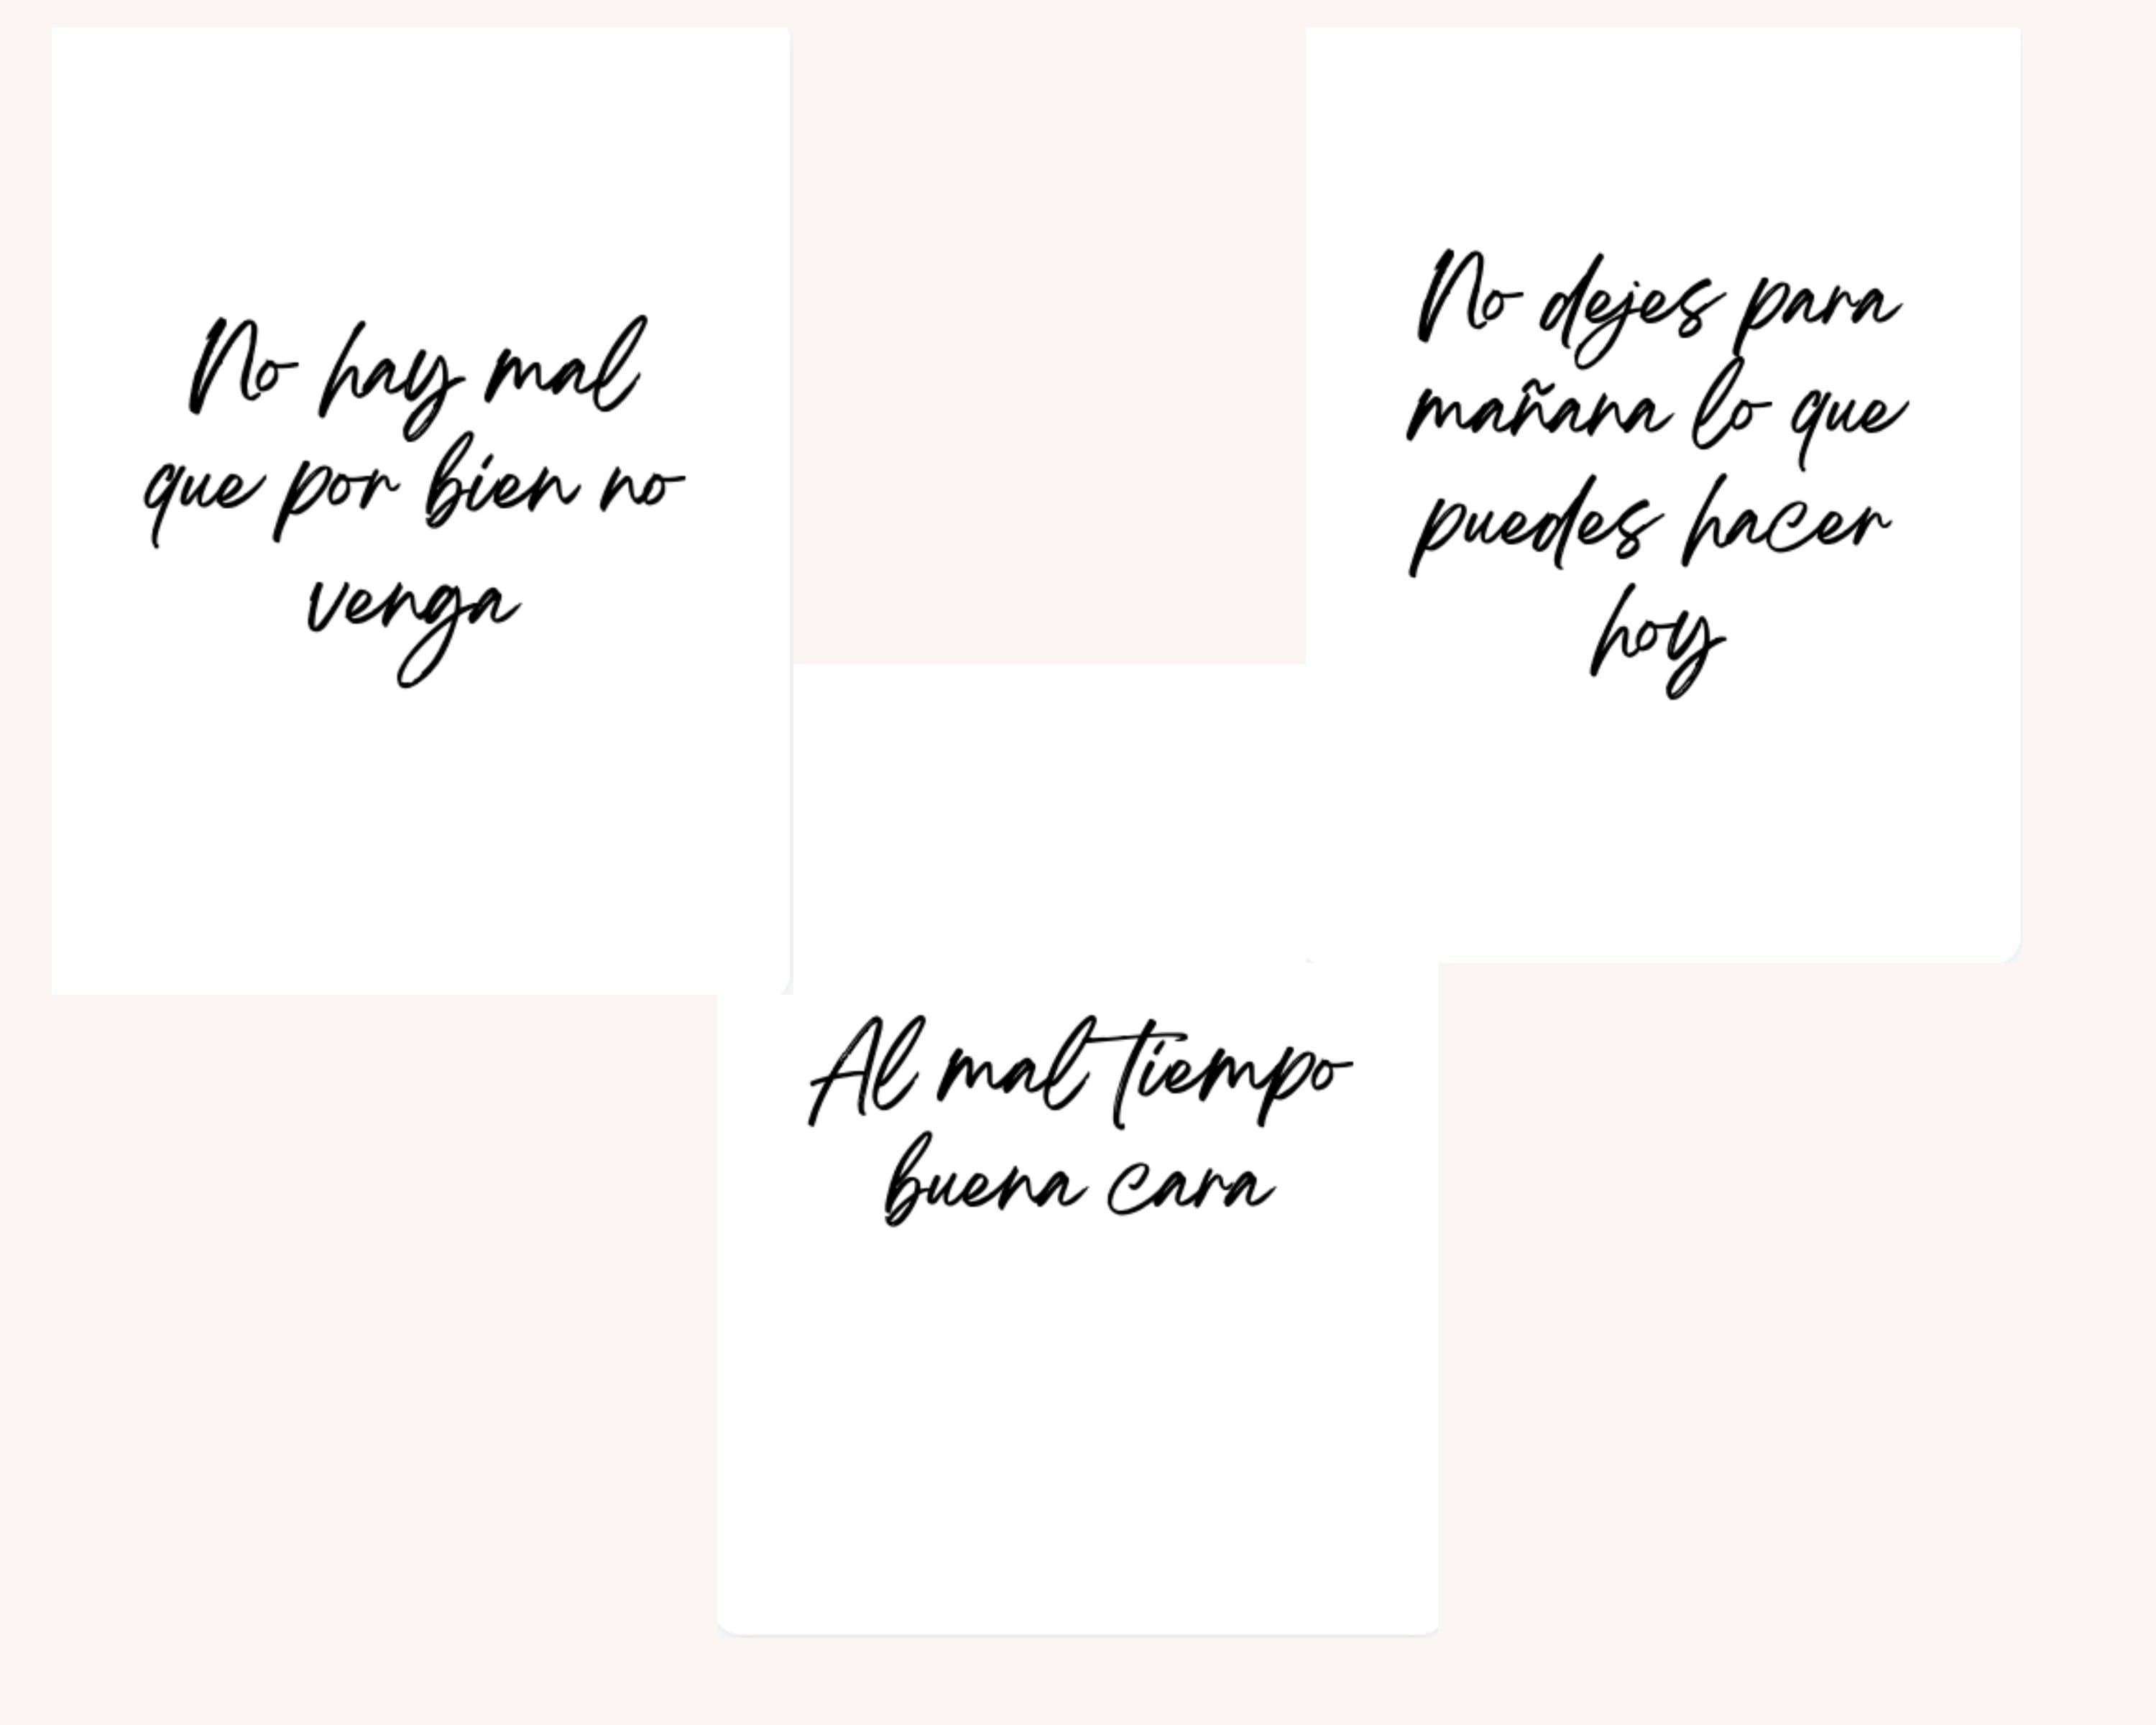 No hay mal
que por bien no
venga
No dejes para
mañana lo que
puedes hacer
hoy
Al mal tiempo
buena cara